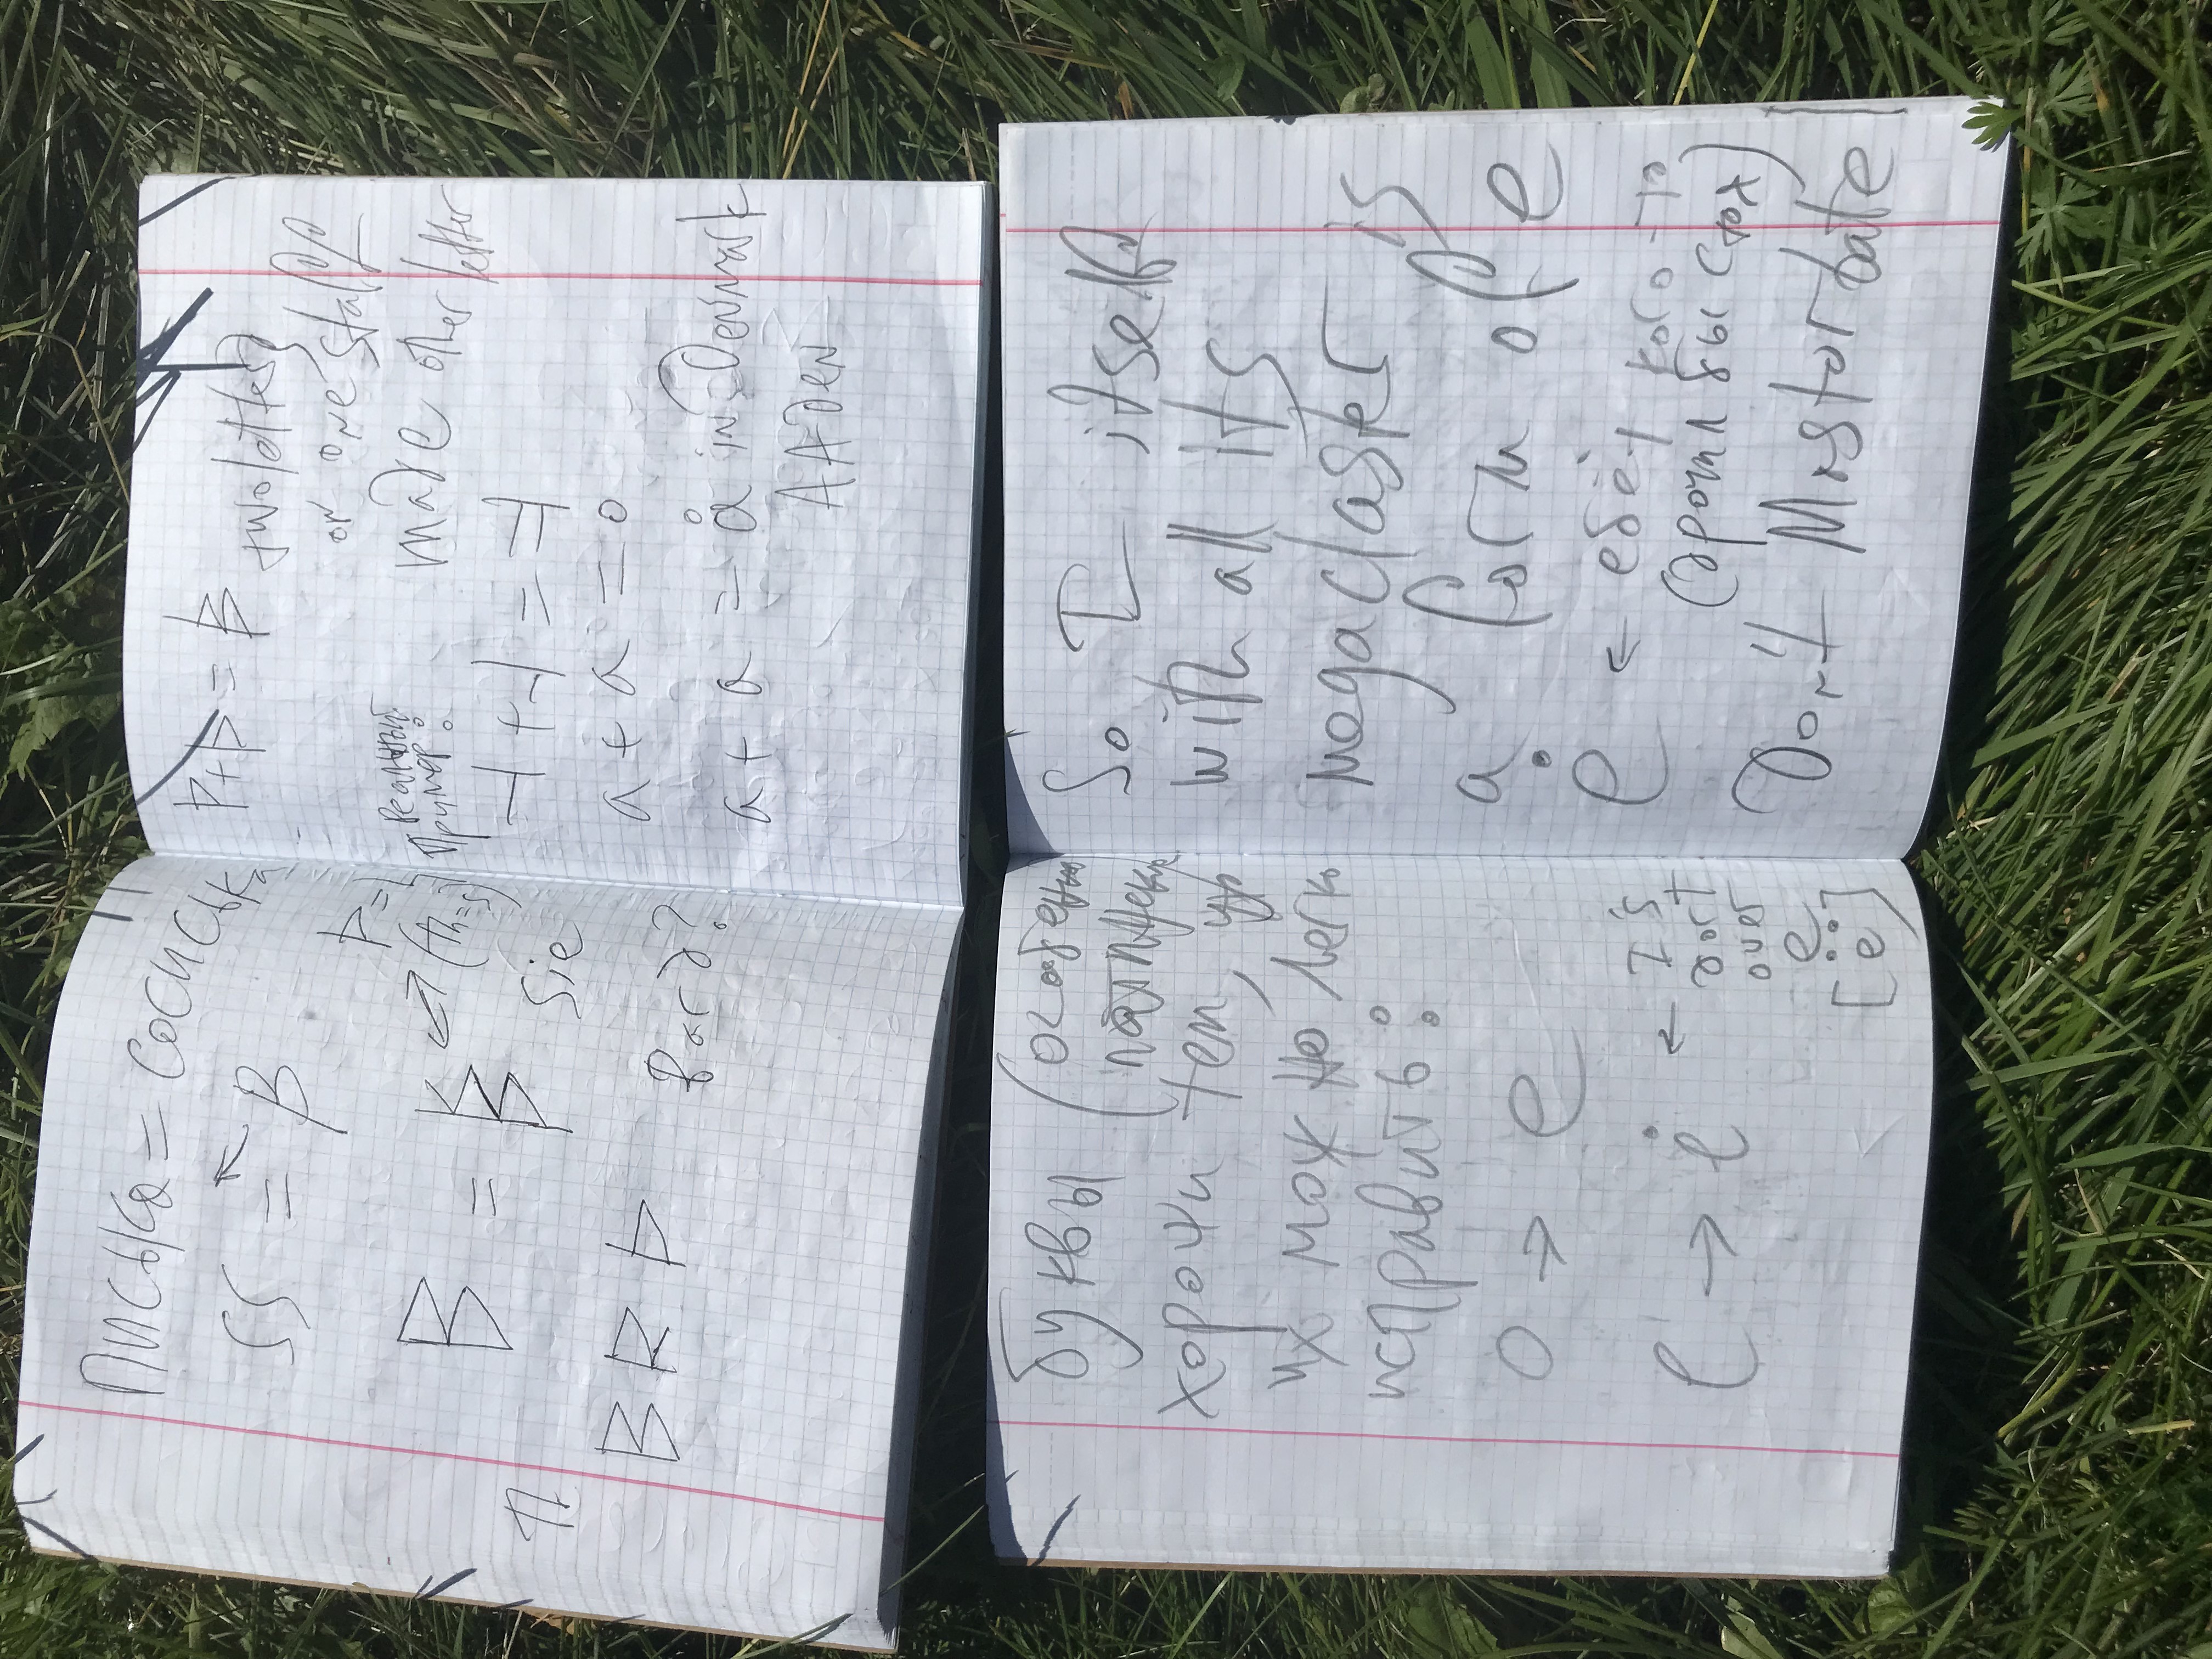 Писька = сосиська
SS = β
Þ =
B =
(th=s)
Sie
П
B R Þ
Bard?
Þ+Þ =
two letters
or one staff
made other letter
Реальный
Пример:
a + a = o
a + a = å in Denmark
AAden
буквы (особенно
латинские
хороши тем, что
их можно легко
исправить:
o → e
e → ė ← I's
dort
over
e
[ë]
So I itself
with all its
megaclaster is
a form of e
ė ← ебёт кого-то
(дрочил бы стоя)
Don't Mastorbate